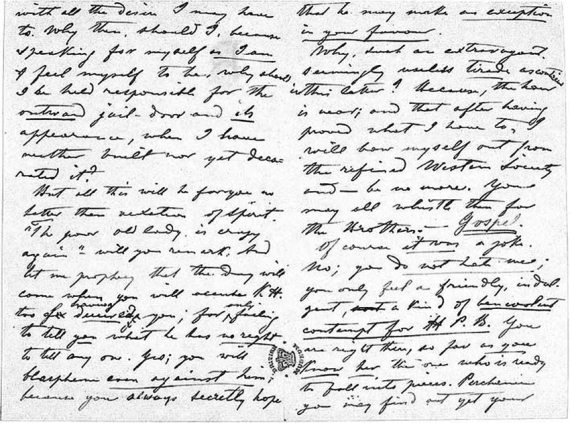 with all the desire I may have
to. Why then, should I, because
speaking for myself as I am
I feel myself to be, why should
I be held responsible for the
outward jail-door and its
appearance, when I have
neither built nor yet deco-
rated it?
But all this will be for you no
better than vexation of spirit.
"The poor old lady is crazy
again" will you remark. And
let me prophecy that the day will
come when you will accuse K.H.
too of having deceived you, for only failing
to tell you what he has no right
to tell any one. Yes; you will
blaspheme even against him;
because you always secretly hope
that he may make an exception
in your favour.
Why, such an extravagant,
seemingly useless tirade as contained
in this letter? Because, the hour
is near; and that after having
proved what I have to, I
will bow myself out from
the refined Western Society
and — be no more. You
may all whistle then for
the Brothers. — Gospel.
Of course it was a joke.
No; you do not hate me;
you only feel a friendly, indul-
gent, a kind of benevolent
contempt for H P B. You
are right there, so far as you
know her the one who is ready
to fall into pieces. Perchance
you may find out yet your